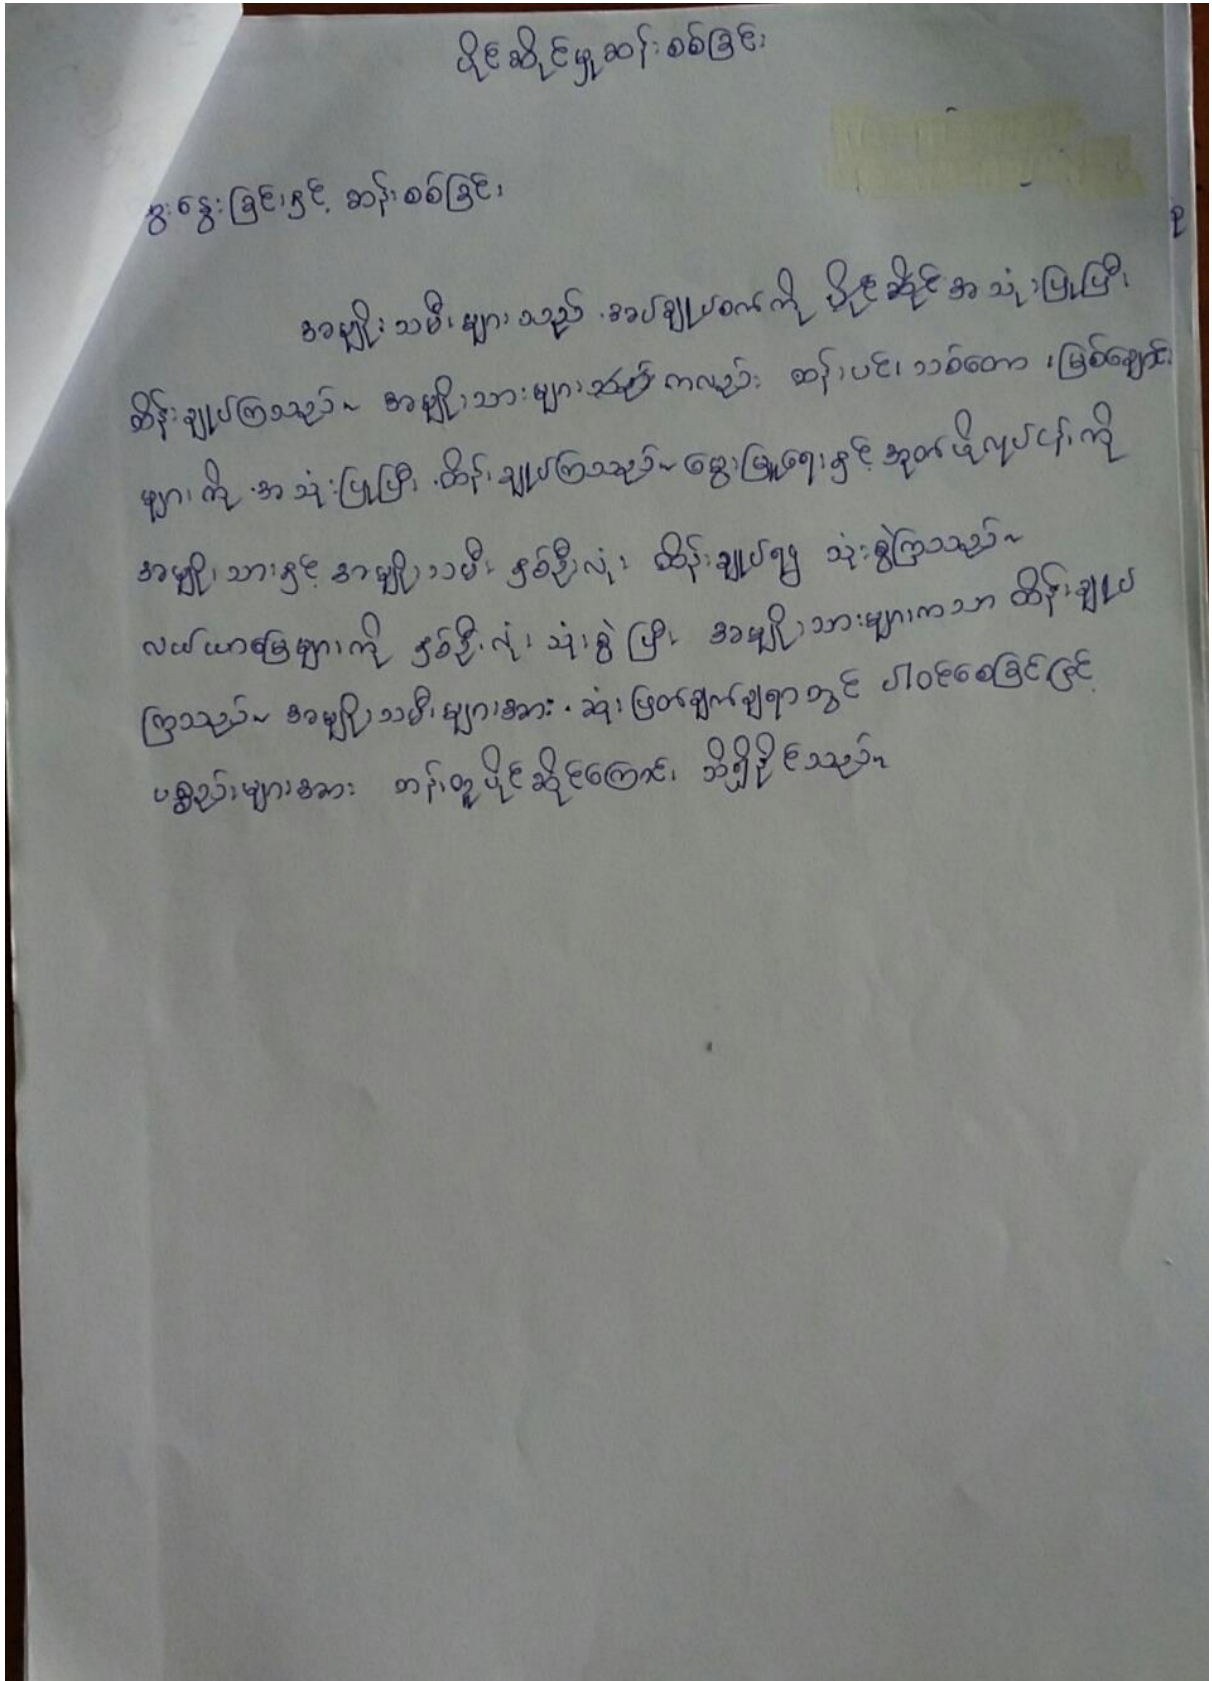 ပိုင်ဆိုင်မှုဆန်းစစ်ခြင်း
နွေးခြင်းနှင့် ဆန်းစစ်ခြင်း
အမျိုးသမီးများသည် အပ်ချုပ်စက်ကို ပိုင်ဆိုင်အသုံးပြုပြီး
ထိန်းချုပ်ကြသည်။ အမျိုးသားများ ကလည်း ဆန်းပင်၊ သစ်တော၊ မြစ်ချောင်း
များကို အသုံးပြုပြီး ထိန်းချုပ်ကြသည်။ မွေးမြူရေးနှင့် အုတ်ဖိုလုပ်ငန်းကို
အမျိုးသားနှင့် အမျိုးသမီး နှစ်ဦးလုံး ထိန်းချုပ်၍ သုံးစွဲကြသည်။
လယ်ယာမြေများကို နှစ်ဦးလုံး သုံးစွဲပြီး အမျိုးသားများကသာ ထိန်းချုပ်
ကြသည်။ အမျိုးသမီးများအား ဆုံးဖြတ်ချက်ချရာတွင် ပါဝင်စေခြင်ဖြင့်
ပစ္စည်းများအား တန်းတူပိုင်ဆိုင်ကြောင်း သိရှိနိုင်သည်။